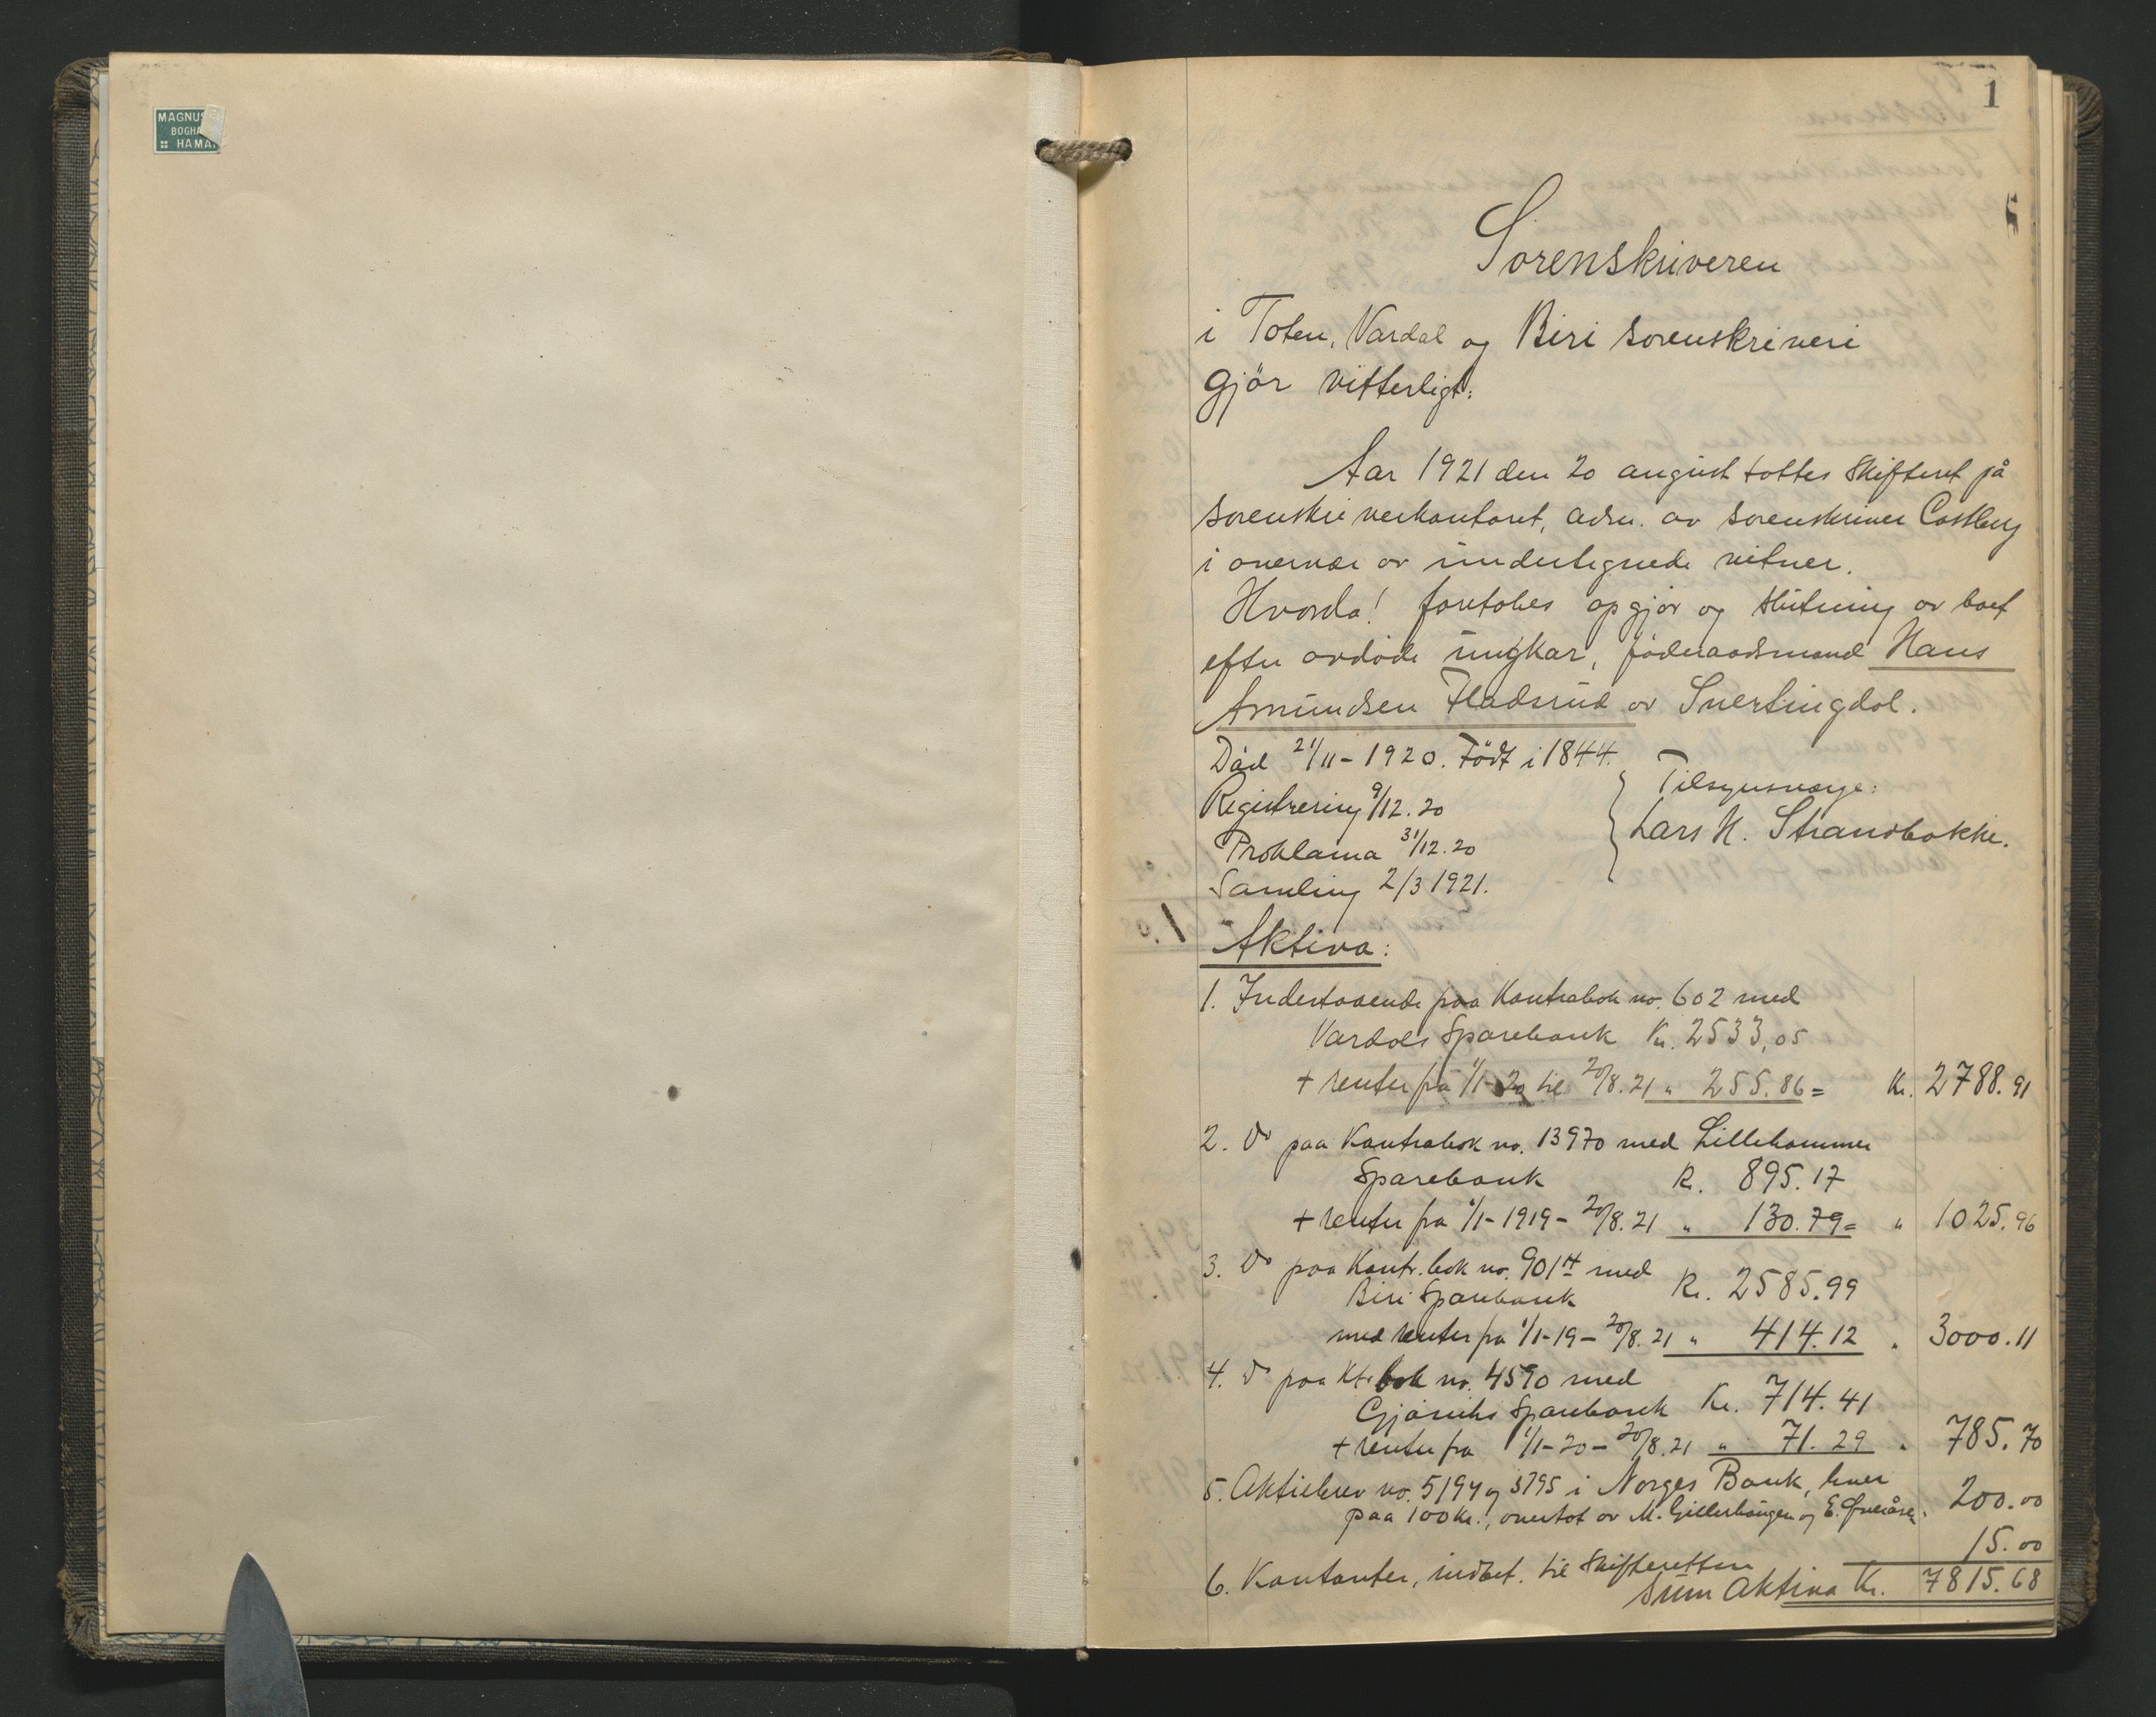 MAGNUS
BOGHA
HAMA
1
Sorenskriveren
i Toten, Vardal og Biri sorenskriveri
gjör vitterligt:
Aar 1921 den 20 august sattes Skifteret på
sorenskriverkontoret, adm. av sorenskriver Castberg
i overvær av undertegnede vitner.
Hvorda! foretokes opgjör og slutning av boet
efter avdöde ungkar, föderaadsmand Hans
Amundsen Fladsrud av Snertingdal.
Död 21/11-1920. Födt i 1844.
Tilsynsverge:
Registrering 9/12.20
Lars H. Strandbakke.
Proklama 31/12.20
Samling 2/3 1921.
1
Aktiva:
1. Indestaaende paa Kontrabok no. 602 med
Vardals Sparebank Kr. 2533,05
+ renter fra 1/1-20 til 20/8.21 " 255.86 = Kr. 2788.91
2. Do paa Kontrabok no. 13970 med Lillehammer
Sparebank Kr. 895.17
+ renter fra 1/1-1919 - 20/8.21 " 130.79 = " 1025.96
3. Do paa Kontr.bok no. 9014 med
Biri Sparebank Kr. 2585.99
med renter fra 1/1-19 - 20/8.21 " 414.12 " 3000.11
4. Do paa Ktr.bok no. 4590 med
Gjöviks Sparebank Kr. 714.41
+ renter fra 1/1-20 - 20/8.21 " 71.29 " 785.70
5. Aktiebrev no. 5194 og 5795 i Norges Bank, hver
paa 100 Kr., overtat av M. Gillerhaugen og E. " 200.00
15.00
6. Kontanter, indbet. til Skifteretten
Sum Aktiva Kr. 7815.68